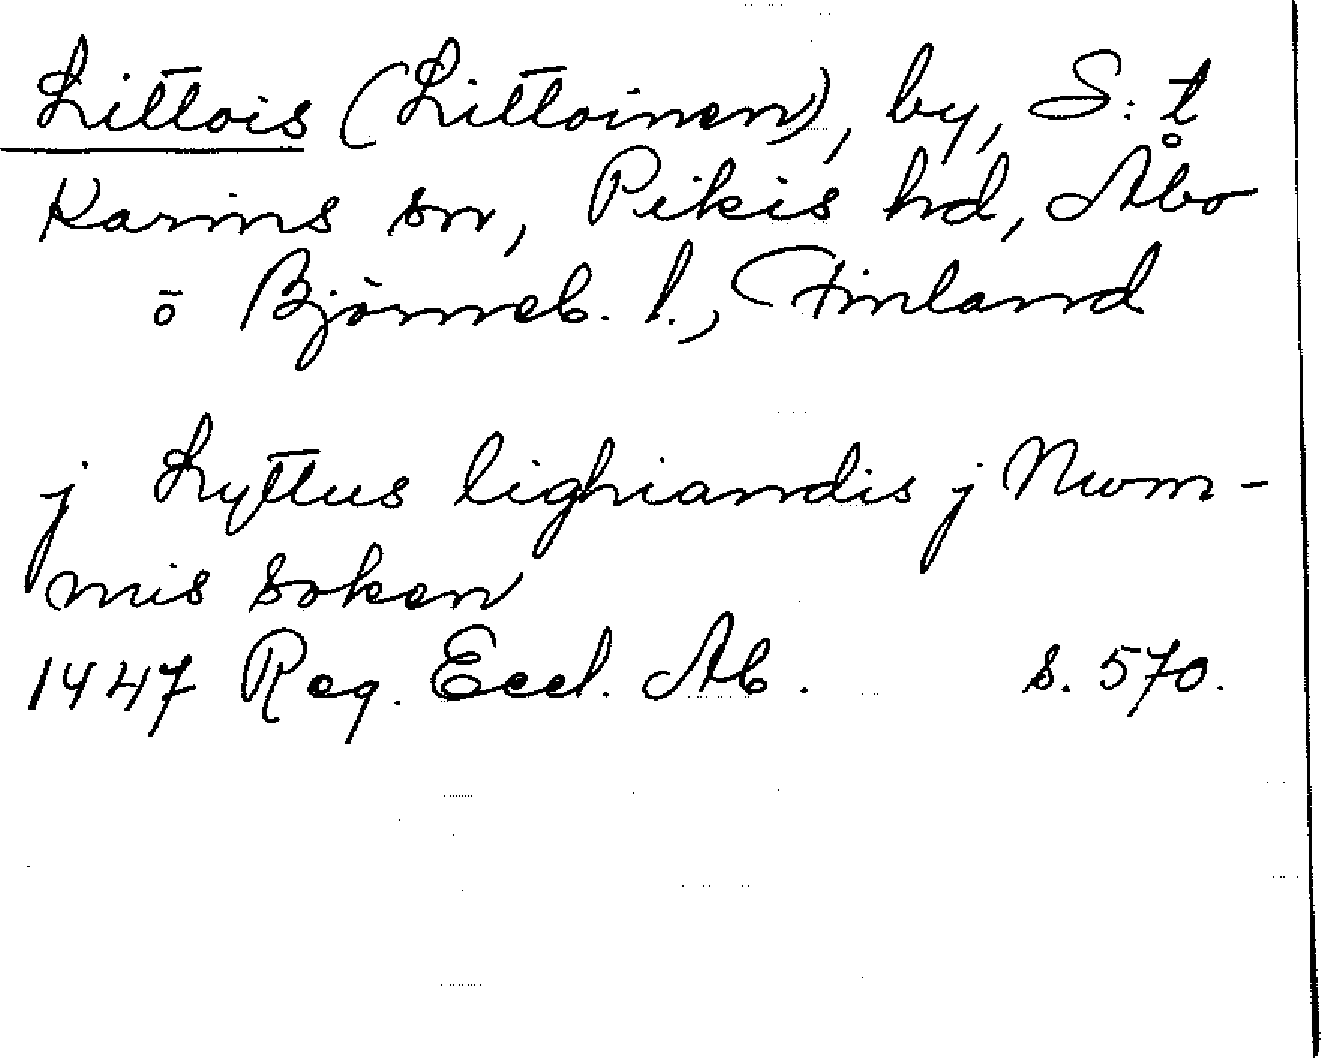 Littois (Littoinen), by, S:t
Karins sn, Pikis hd, Åbo
o Björneb. l., Finland
j Lyttus lighiandis j Nwm-
mis soken
1447 Reg. Eccl. Ab. s. 570.